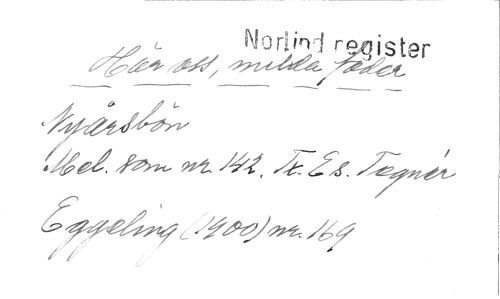 Norlind register
Hör oss, milda fader
Nyårsbön
Mel. som nr. 142. Tx. Es. Tegnér
Eggeling (1900) nr. 169